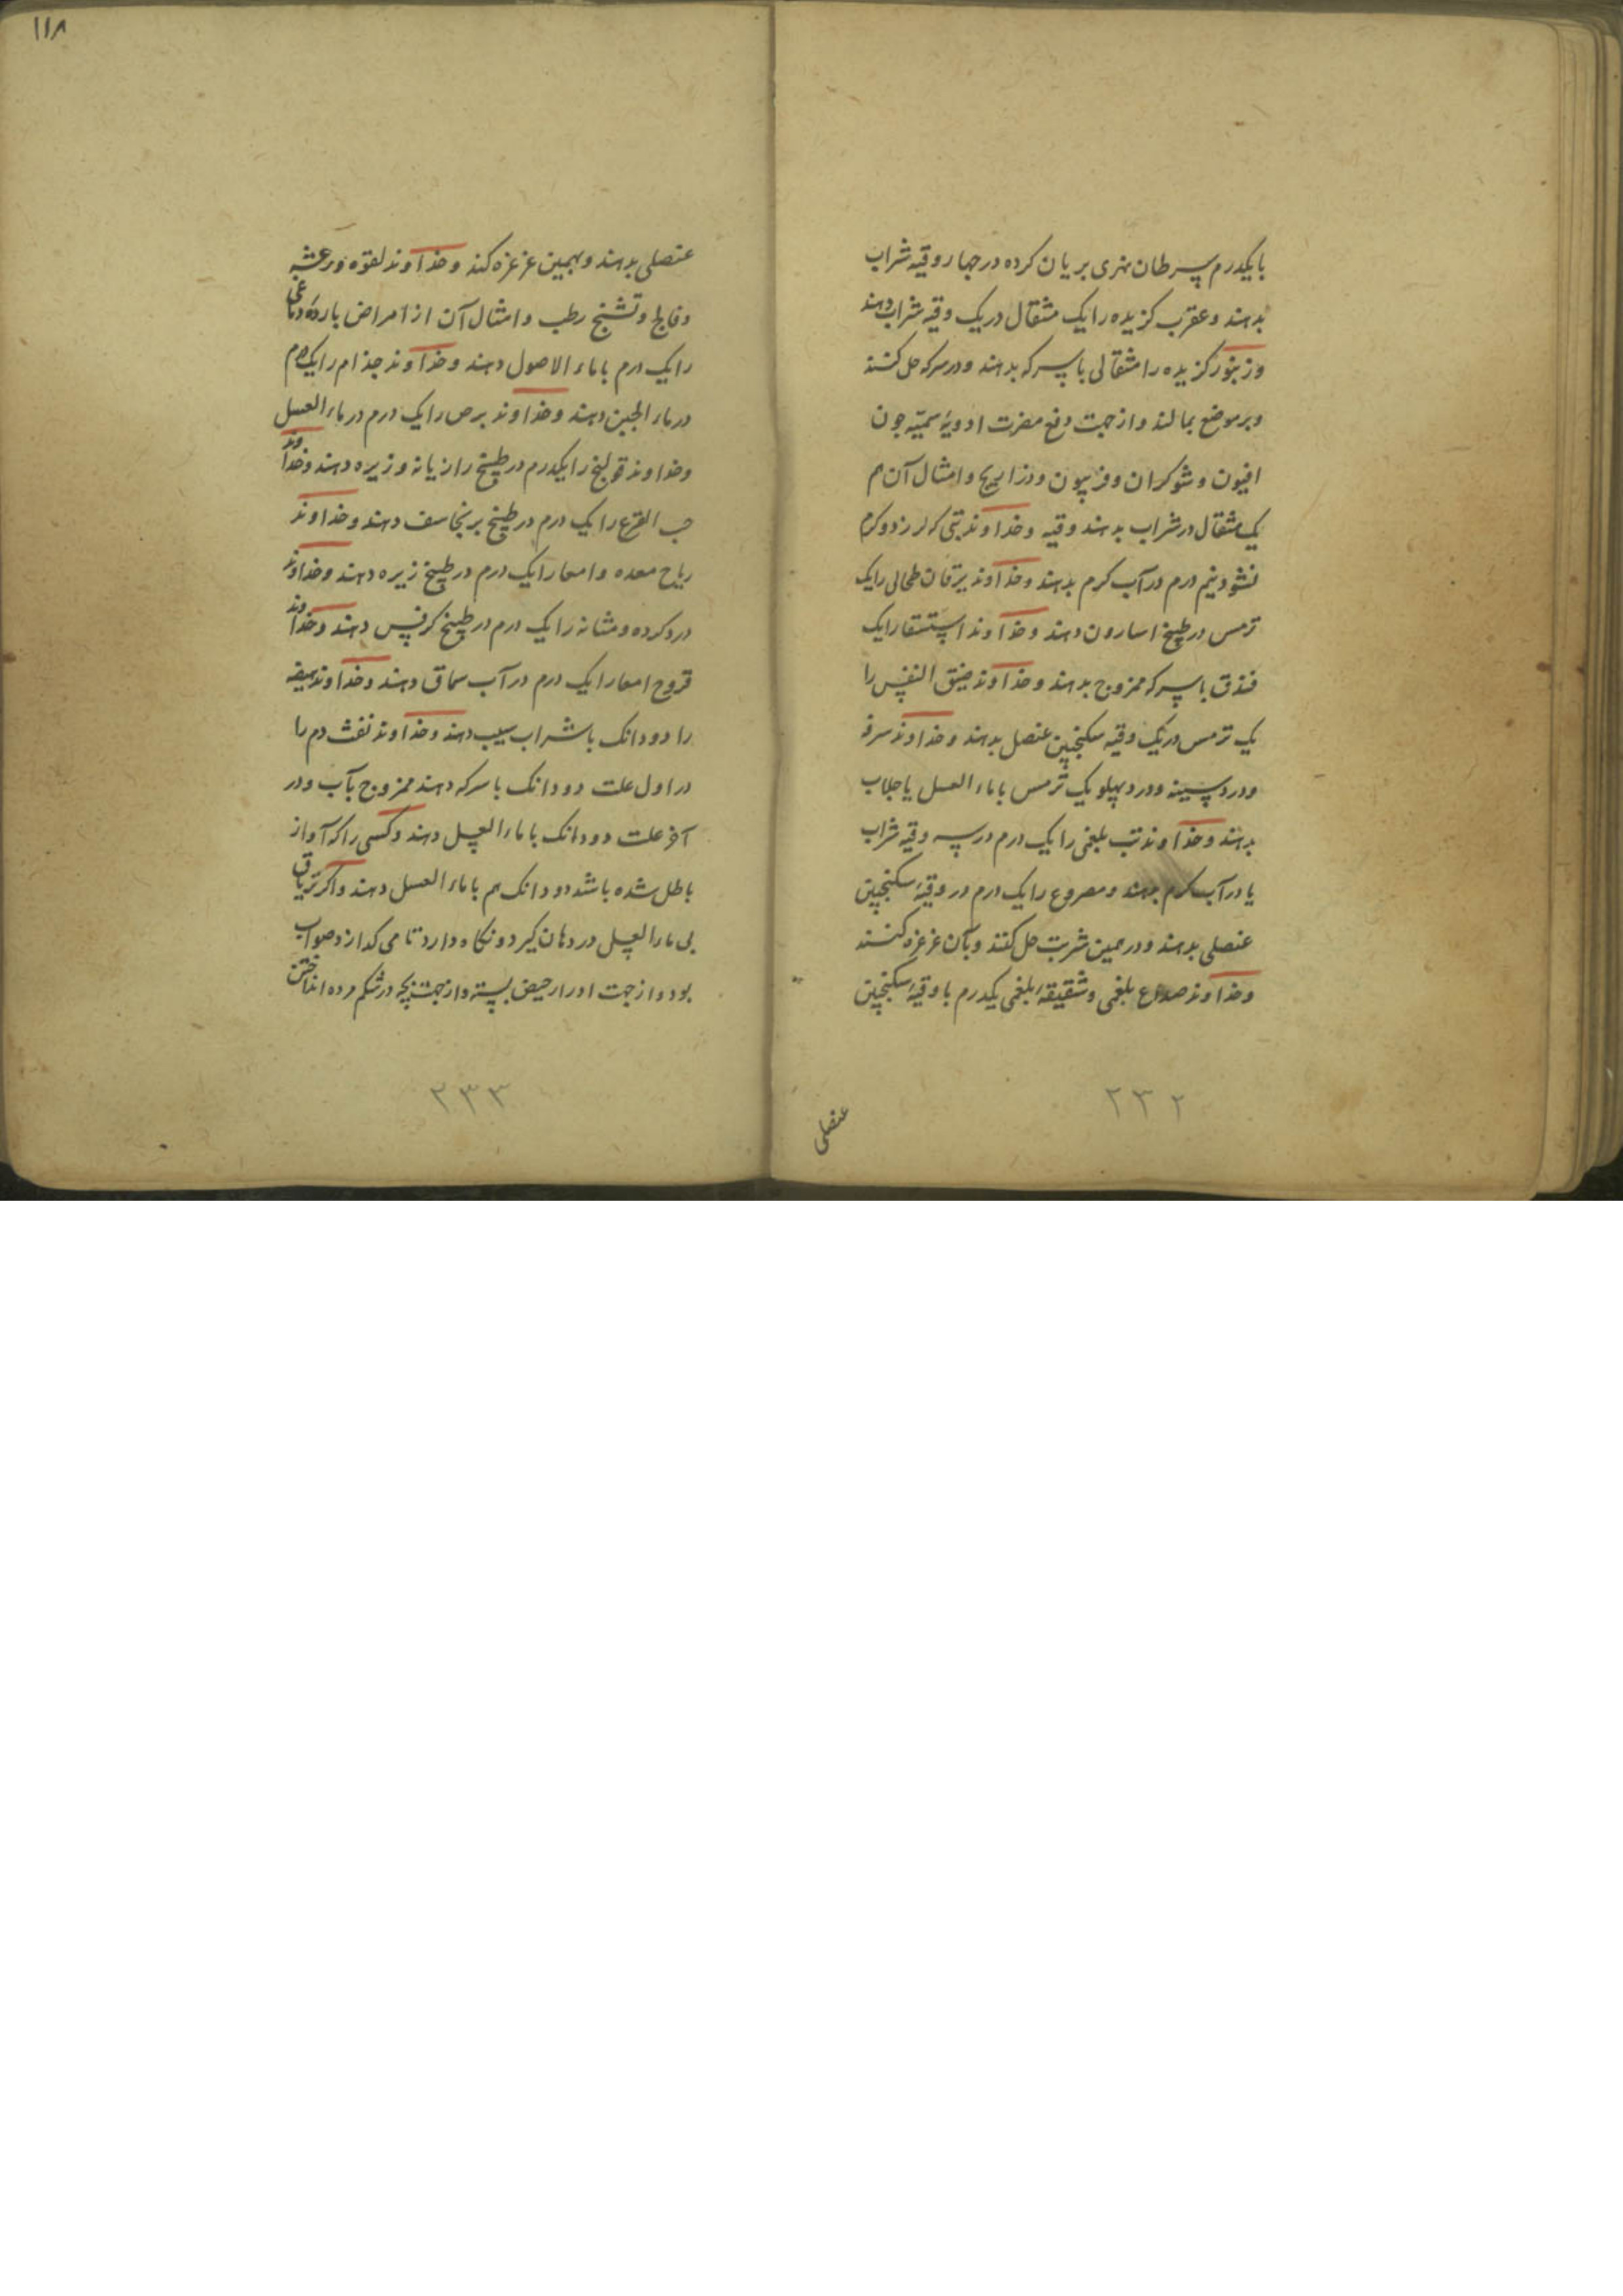 بایکدرم سرطان نهری بریان کرده در جهار وقیه شراب
بدهند و عقرب کزیده را یک مثقال در یک وقیه شراب دهند
و زنبور کزیده را مثقالی با سرکه بدهند و در سرکه حل کنند
و بر موضع بمالند و از جهت دفع مضرت ادویهٔ سمیّه جون
افیون و شوکران و فربیون و ذراریح و امثال آن هم
یک مثقال در شراب بدهند وقیه و خداوند تبی که لرزد و کرم
نشود نیم درم در آب کرم بدهند و خداوند یرقان طحالی را یک
ترمس در طبیخ اسارون دهند و خداوند استسقا را یک
فندق با سرکه ممزوج بدهند و خداوند ضیق النفس را
یک ترمس در یک وقیه سکنجبین عنصل بدهند و خداوند سرفه
و درد سینه و درد پهلو یک ترمس با ماء العسل یا جلاب
بدهند و خداوند تب بلغمی را یک درم در سه وقیه شراب
یا در آب کرم بدهند و مصروع را یک درم در وقیهٔ سکنجبین
عنصلی بدهند و در همین شربت حل کنند و بآن غرغره کنند
و خداوند صداع بلغمی و شقیقهٔ بلغمی یکدرم با وقیهٔ سکنجبین
عنصلی
۲۳۲
۱۱۸
عنصلی بدهند و بهمین غرغره کند و خداوند لقوه و رعشه
و فالج و تشنج رطب و امثال آن از امراض باردهٔ دماغی
را یک درم با ماء الاصول دهند و خداوند جذام را یک درم
در ماء الجبن دهند و خداوند برص را یک درم در ماء العسل
و خداوند قولنج را یکدرم در طبیخ رازیانه و زیره دهند و خداوند
حب القرع را یک درم در طبیخ برنجاسف دهند و خداوند
ریاح معده و امعا را یک درم در طبیخ زیره دهند و خداوند
درد کرده و مثانه را یک درم در طبیخ کرفس دهند و خداوند
قروح امعا را یک درم در آب سماق دهند و خداوند هیضه
را دو دانک با شراب سیب دهند و خداوند نفث دم را
در اول علت دو دانک با سرکه دهند ممزوج بآب و در
آخر علت دو دانک با ماء العسل دهند و کسی را که آواز
باطل شده باشد دو دانک هم با ماء العسل دهند و اکر تریاق
بی ماء العسل در دهان کیرد و نکاه دارد تا می کدازد صواب
بود و از جهت ادرار حیض بسته و از جهت بچه در شکم مرده انداختن
۲۳۳